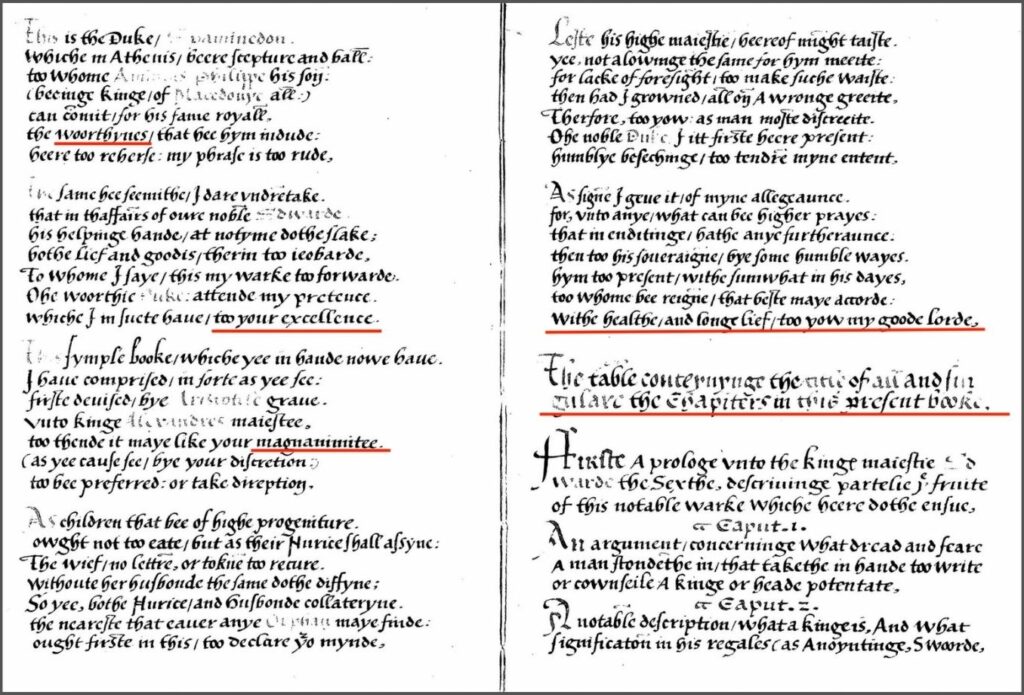 This is the Duke / Epaminedon.
whiche in Athenis / beere scepture and ball:
too whome Philippe his soñ:
(beeinge kinge / of Macedonye all:)
can cõmit / for his fame royall,
the woorthynes / that bee hym indude:
heere too reherse: my phrase is too rude,
The same hee seemithe / I dare vndretake.
that in thaffairs of oure noble Edwarde.
his helpinge hande / at notyme dothe slake;
bothe lief and goodis / therin too ieobarde,
To whome I saye / this my warke too forwarde.
Ohe woorthie Duke: attende my pretence.
whiche I m suete have / too your excellence.
This symple booke / whiche yee in hande nowe have.
I have comprised / in sorte as yee see:
firste devised / bye Aristotile grave.
vnto kinge Alexandres maiestee,
too thende it maye like your magnanimitee.
(as yee cause see / bye your discretion:)
too bee preferred: or take direption,
As children that bee of highe progeniture.
owght not too eate / but as their Nurice shall assyne:
The wief / no lettre, or tokñe too recure.
withoute her husbonde the same dothe diffyne;
So yee, bothe Nurice / and Husbonde collateryne.
the neareste that eaver anye Orphan maye finde:
ought firste in this / too declare yo mynde,
Leste his highe maiestie / heereof might taiste.
yee, not alowinge the same for hym meete:
for lacke of foresight / too make suche waiste:
then had I growned / all oñ A wronge greete,
Therfore, too yow: as man moste discreeite.
Ohe noble Duke I itt firste heere present:
humblye besechinge / too tendre myne entent,
As signe I geve it / of myne allegeaunce.
for, vnto anye / what can bee higher prayes:
that in enditinge / hathe anye furtheraunce:
then too his soueraigne / bye some humble wayes.
hym too present / withe sumwhat in his dayes,
too whome bee reigne / that beste maye accorde:
Withe healthe / and longe lief / too yow my goode lorde,
The table conternynge the title of all and sin
gulare the Chapiters in this present booke.
Firste A prologe vnto the kinge maiestie Ed
warde the Sexthe, descrivinge partelie yͤ fruite
of this notable warke whiche heere dothe ensue,
Caput.1.
An argument / concerninge what dread and feare
A man stondethe in / that takethe in hande too write
or cownseile A kinge or heade potentate,
Caput.2.
A notable description / what a kinge is, And what
significatoñ in his regales (as Anoyntinge, Swoorde,